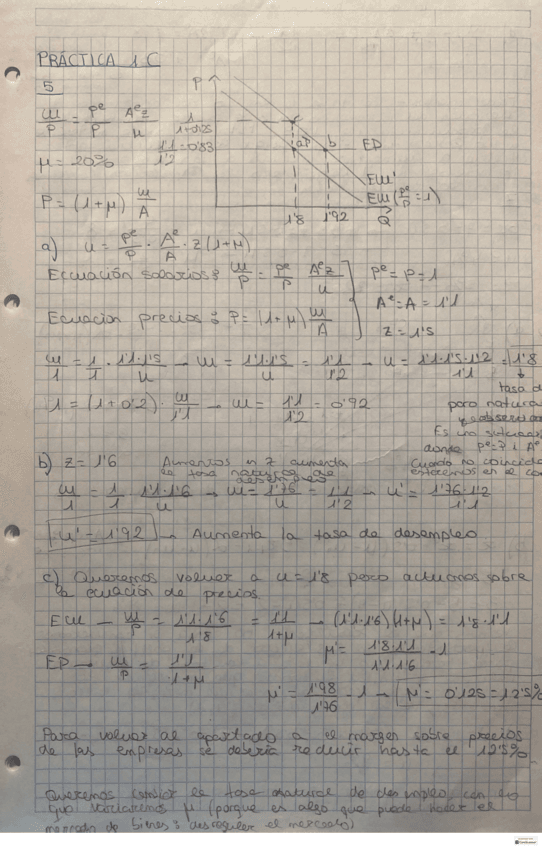 PRÁCTICA 1 C
5
W/P = Pe/P Ae z/μ
1/1+0'25
1'1/1'2 = 0'83
μ = 20%
P = (1+μ) W/A
P
c
a
b
ED
EW'
EW (Pe/P = 1)
1'8 1'92 Q
a) u = Pe/P · Ae/A · z (1+μ)
Ecuación salarios: W/P = Pe/P Ae z/u
Ecuación precios: P = (1+μ) W/A
Pe = P = 1
Ae = A = 1'1
z = 1'5
W/1 = 1/1 · 1'1·1'5/u → W = 1'1·1'5/u = 1'1/1'2 → u = 1'1·1'5·1'2/1'1 = 1'8
1 = (1+0'2) · W/1'1 → W = 1'1/1'2 = 0'92
tasa d
paro natura
y observad
Es una situac
donde Pe=P i Ae
Cuando no coincida
estaremos en el co
b) z = 1'6 Aumentos in z aumenta
la tasa natural de
desempleo
W/1 = 1/1 1'1·1'6/u → W = 1'76/u = 1'1/1'2 → u' = 1'76·1'2/1'1
u' = 1'92 → Aumenta la tasa de desempleo
c) Queremos volver a u = 1'8 pero actuamos sobre
la ecuación de precios
EW → W/P = 1'1·1'6/1'8 = 1'1/1+μ → (1'1·1'6)(1+μ) = 1'8·1'1
ED → W/P = 1'1/1+μ
μ' = 1'8·1'1/1'1·1'6 - 1
μ' = 1'98/1'76 - 1 → μ' = 0'125 = 12'5%
Para volver al apartado a el margen sobre precios
de las empresas se debería reducir hasta el 12'5%
Queremos cambiar la tasa natural de desempleo, con lo
que variaremos μ (porque es algo que puede hacer el
mercado de bienes: desregular el mercado)